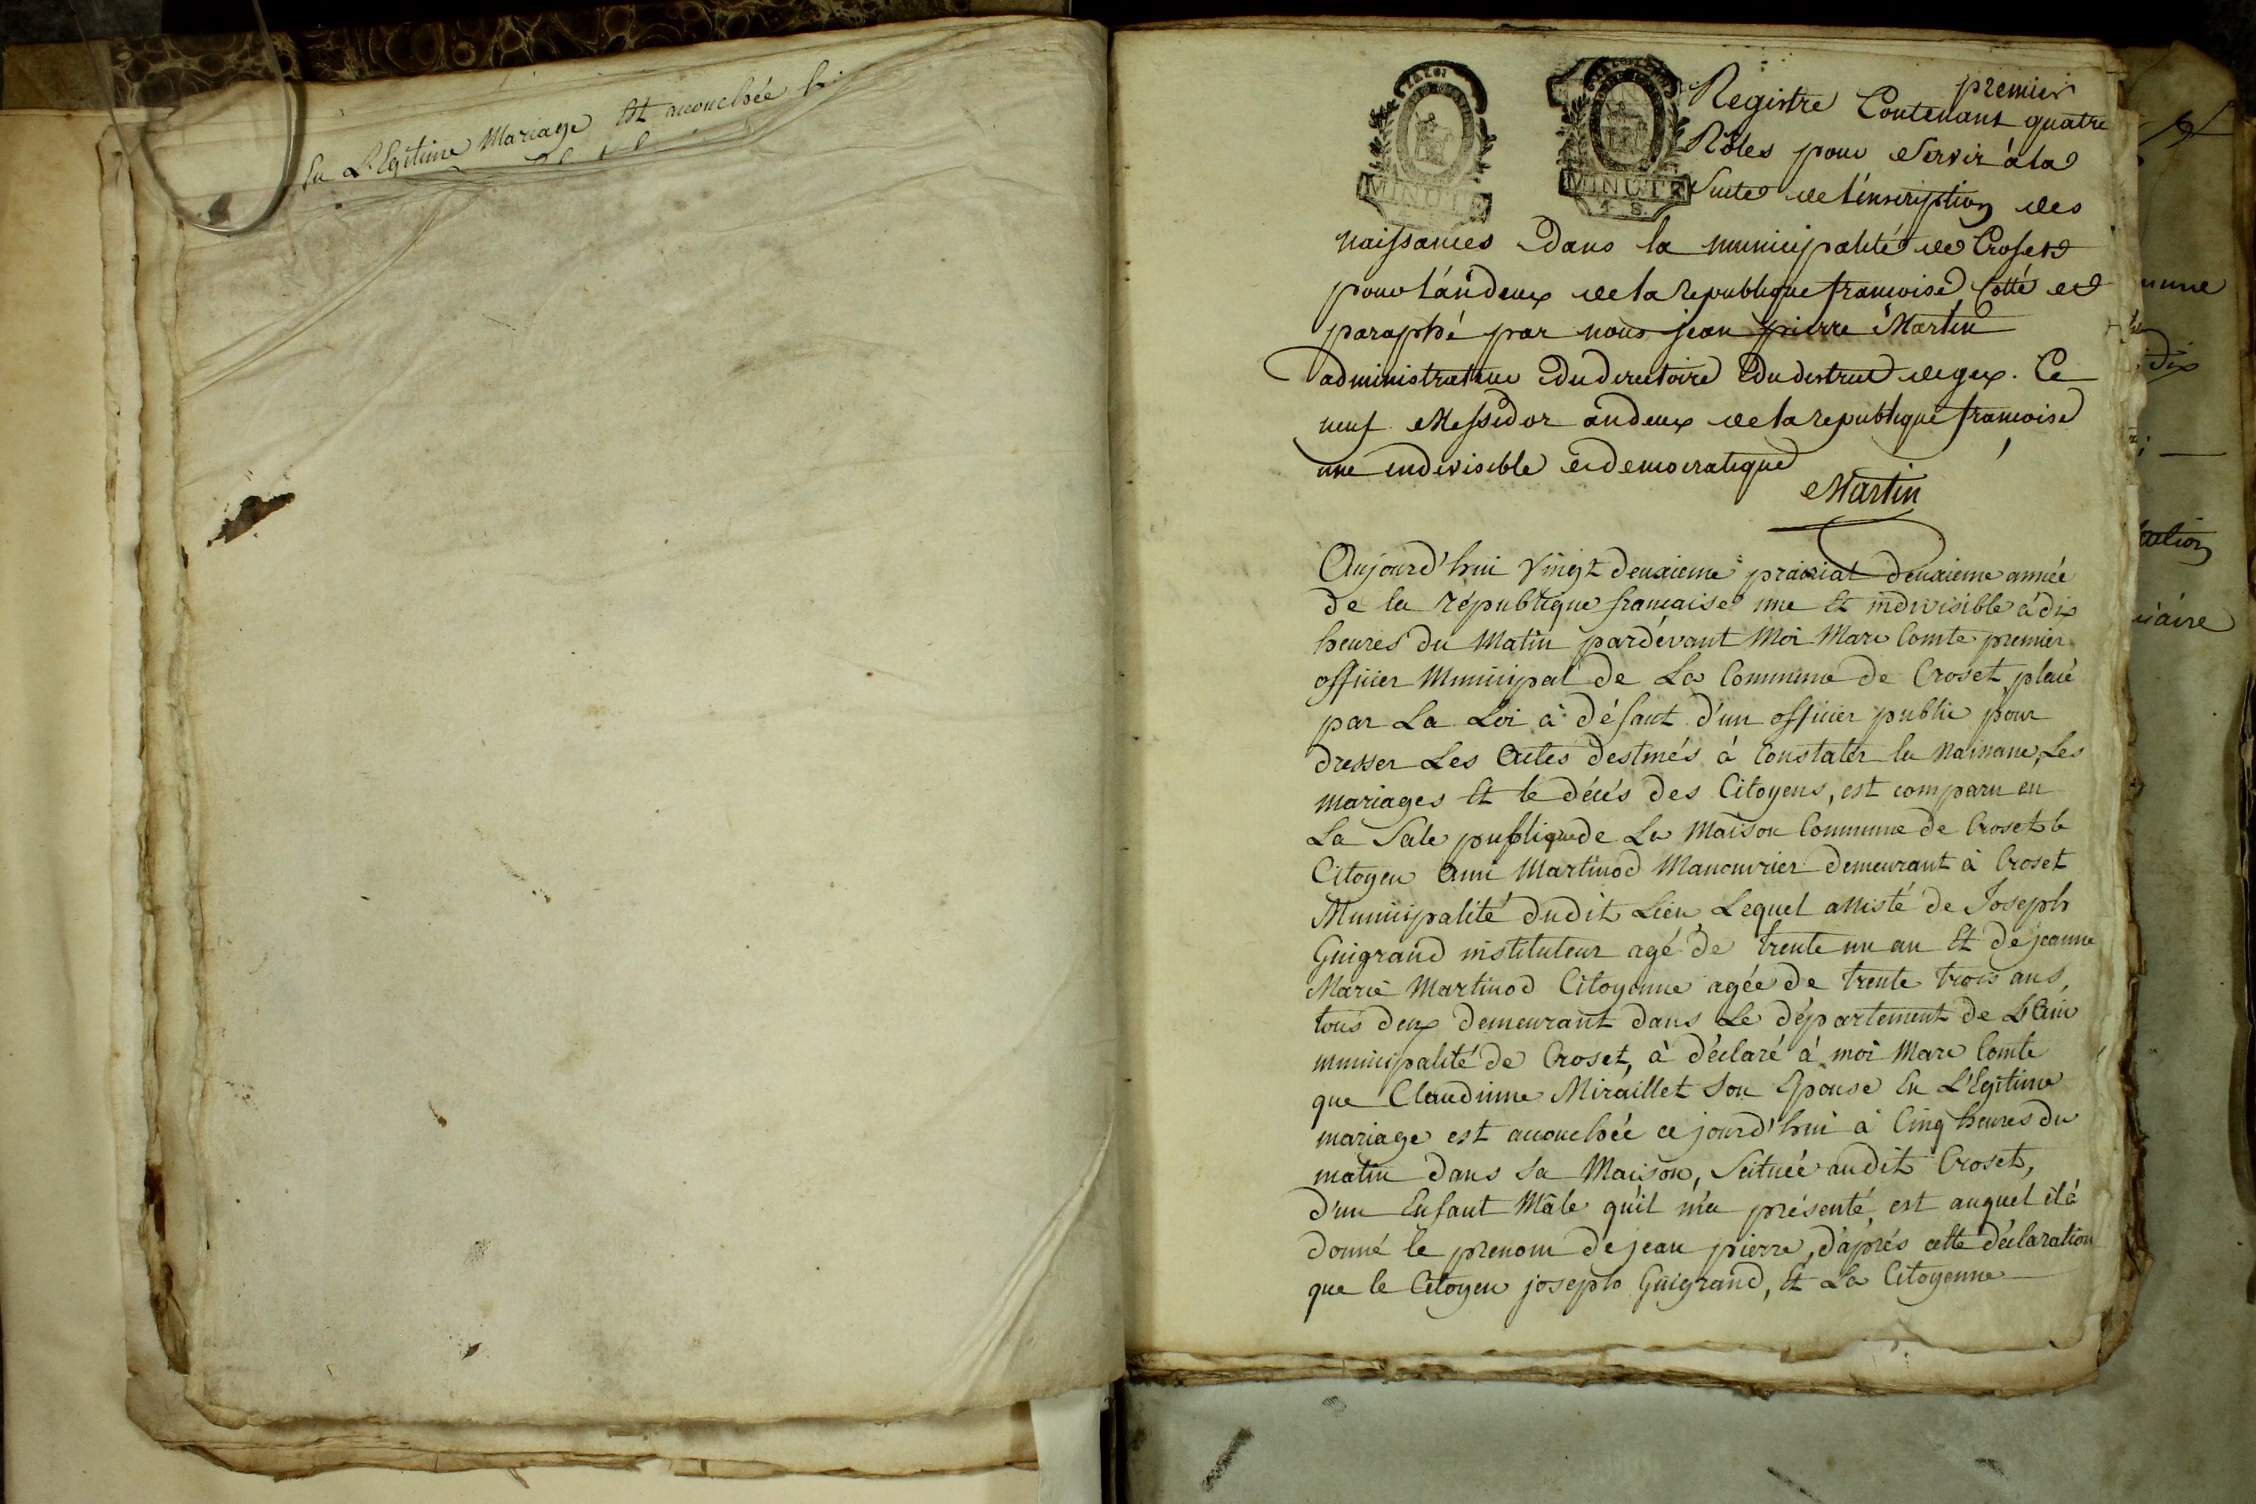 En L'Egitime Mariage Est accouchée hi
premier
Registre Contenant quatre
Rôles pour Servir à la
Suite de l'inscription des
naissances Dans la municipalité de Croset
pour l'an Deux de la republique francoise, Cotté et
paraphé par nous jean pierre Martin
administrateur Du directoire Du district de gex. Ce
neuf Messidor an deux de la republique francoise
une indivisible et democratique
Martin
MINUTE
MINUTE
4 S
Aujourd'hui Vingt deuxieme prairial deuxieme année
de la république française une Et indivisible à dix
heures du Matin pardévant Moi Marc Comte premier
officier Municipal de La Commune de Croset, placé
par La Loi à défaut d'un officier public pour
dresser Les Actes destinés à Constater la naissance, Les
mariages Et le décès des Citoyens, est comparu en
La Sale publique de La Maison Commune de Croset le
Citoyen Ami Martinod Manouvrier demeurant à Croset
Municipalité dudit Lieu, Lequel assisté de Joseph
Guigrand instituteur agé de trente un an Et de jeanne
Marie Martinod Citoyenne agée de trente trois ans,
tous deux demeurant dans Le département de L'Ain
municipalité de Croset, à déclaré à moi Marc Comte
que Claudinne Miraillet Son Epouse En L'Egitime
mariage est accouchée ce jourd'hui à Cinq heures du
matin dans sa Maison, Scituée audit Croset,
d'un Enfant Mâle qu'il m'a présenté, est auquel il à
donné le prenom de jean pierre, d'après cette déclaration
que le Citoyen joseph Guigrand, Et La Citoyenne